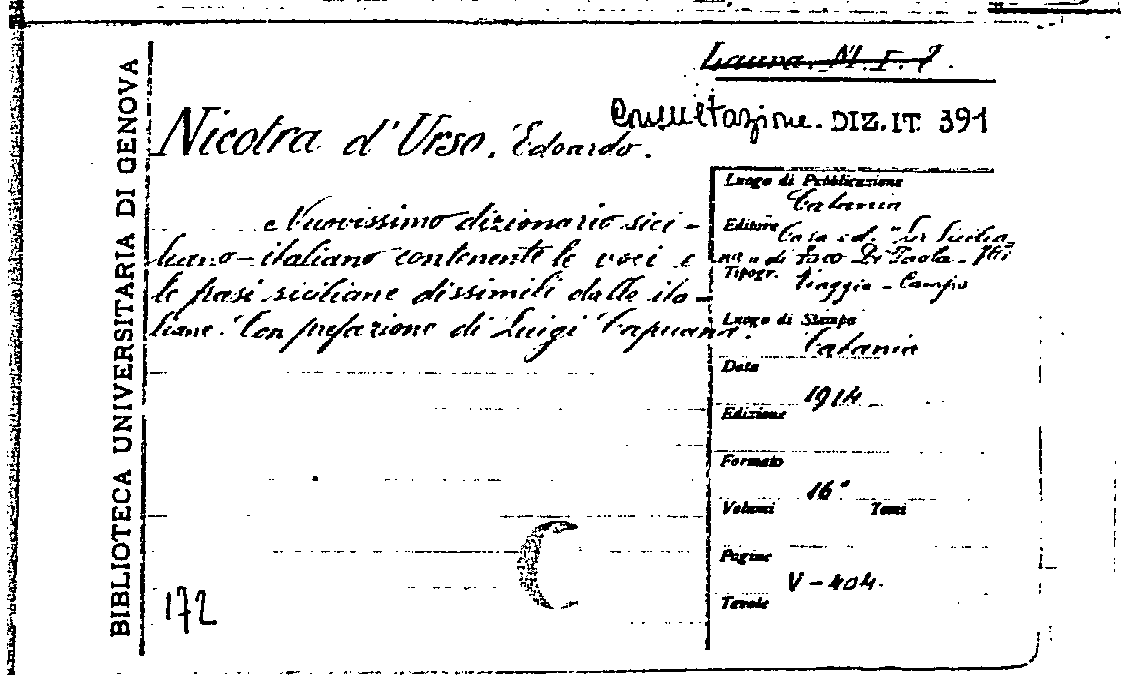 BIBLIOTECA UNIVERSITARIA DI GENOVA
Laura. M. I. 7.
Consultazione. DIZ. IT. 391
Nicotra d'Urso. Edoardo.
Nuovissimo dizionario sici-
liano-italiano contenente le voci e
le frasi siciliane dissimili dalle ita-
liane. Con prefazione di Luigi Capuana.
Luogo di Pubblicazione
Catania
Editore Casa ed. "La Sicilia
na" di
Tipogr. Viaggio-Campo
Luogo di Stampa
Catania
Data
1914
Edizione
Formato
16°
Volumi Tomi
Pagine
V-404.
Tavole
172